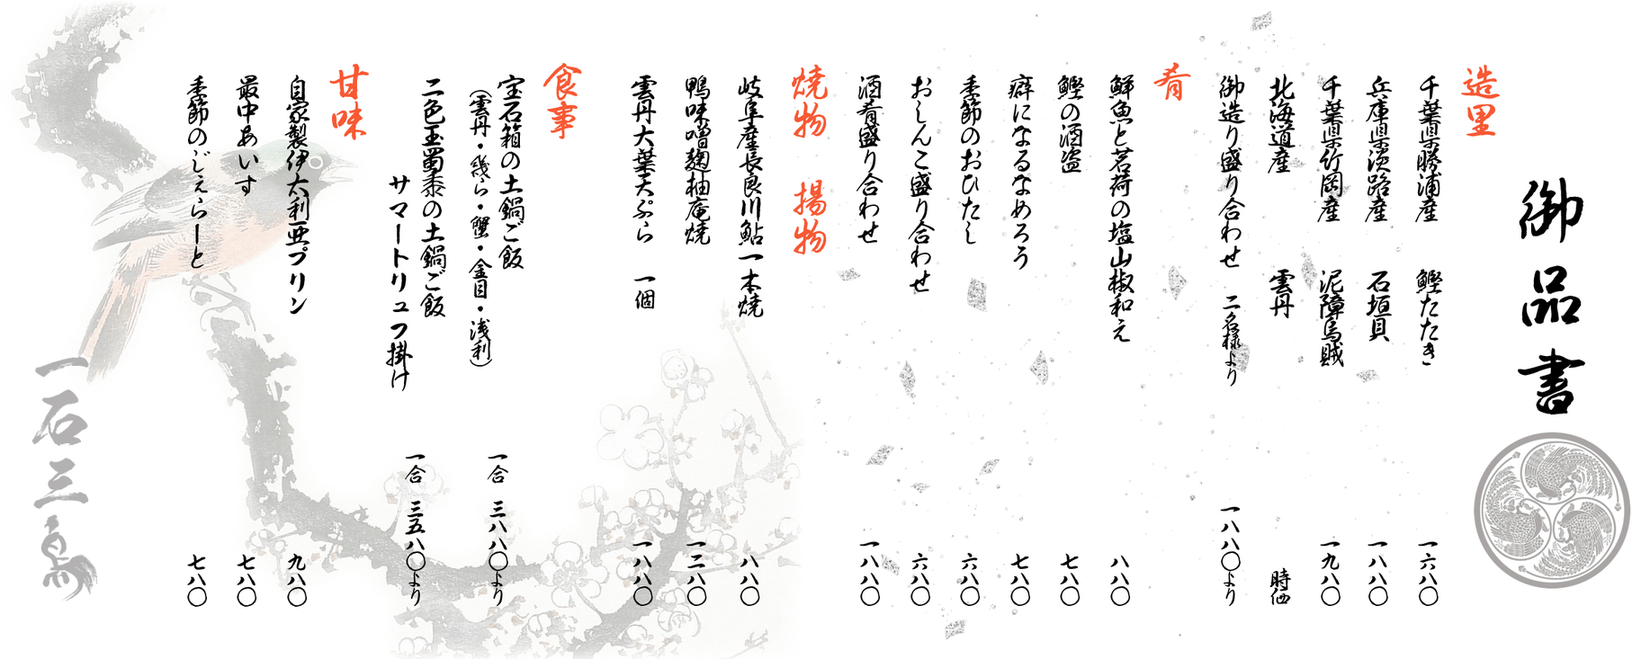 御品書
造里
千葉県勝浦産 鰹たたき 一六八〇
兵庫県淡路産 石垣貝 一八八〇
千葉県竹岡産 泥障烏賊 一九八〇
北海道産 雲丹 時価
御造り盛り合わせ 二名様より 一八八〇より
肴
鮮魚と茗荷の塩山椒和え 八八〇
鰹の酒盗 七八〇
癖になるなめろう 七八〇
季節のおひたし 六八〇
おしんこ盛り合わせ 六八〇
酒肴盛り合わせ 一八八〇
焼物 揚物
岐阜産長良川鮎一本焼 八八〇
鴨味噌麹柚庵焼 一二八〇
雲丹大葉天ぷら 一個 一八八〇
食事
宝石箱の土鍋ご飯
（雲丹・幾ら・蟹・金目・浅利） 一合 三八八〇より
二色玉蜀黍の土鍋ご飯
サマートリュフ掛け 一合 三五八〇より
甘味
自家製伊太利亜プリン 九八〇
最中あいす 七八〇
季節のじぇらーと 七八〇
一石三鳥